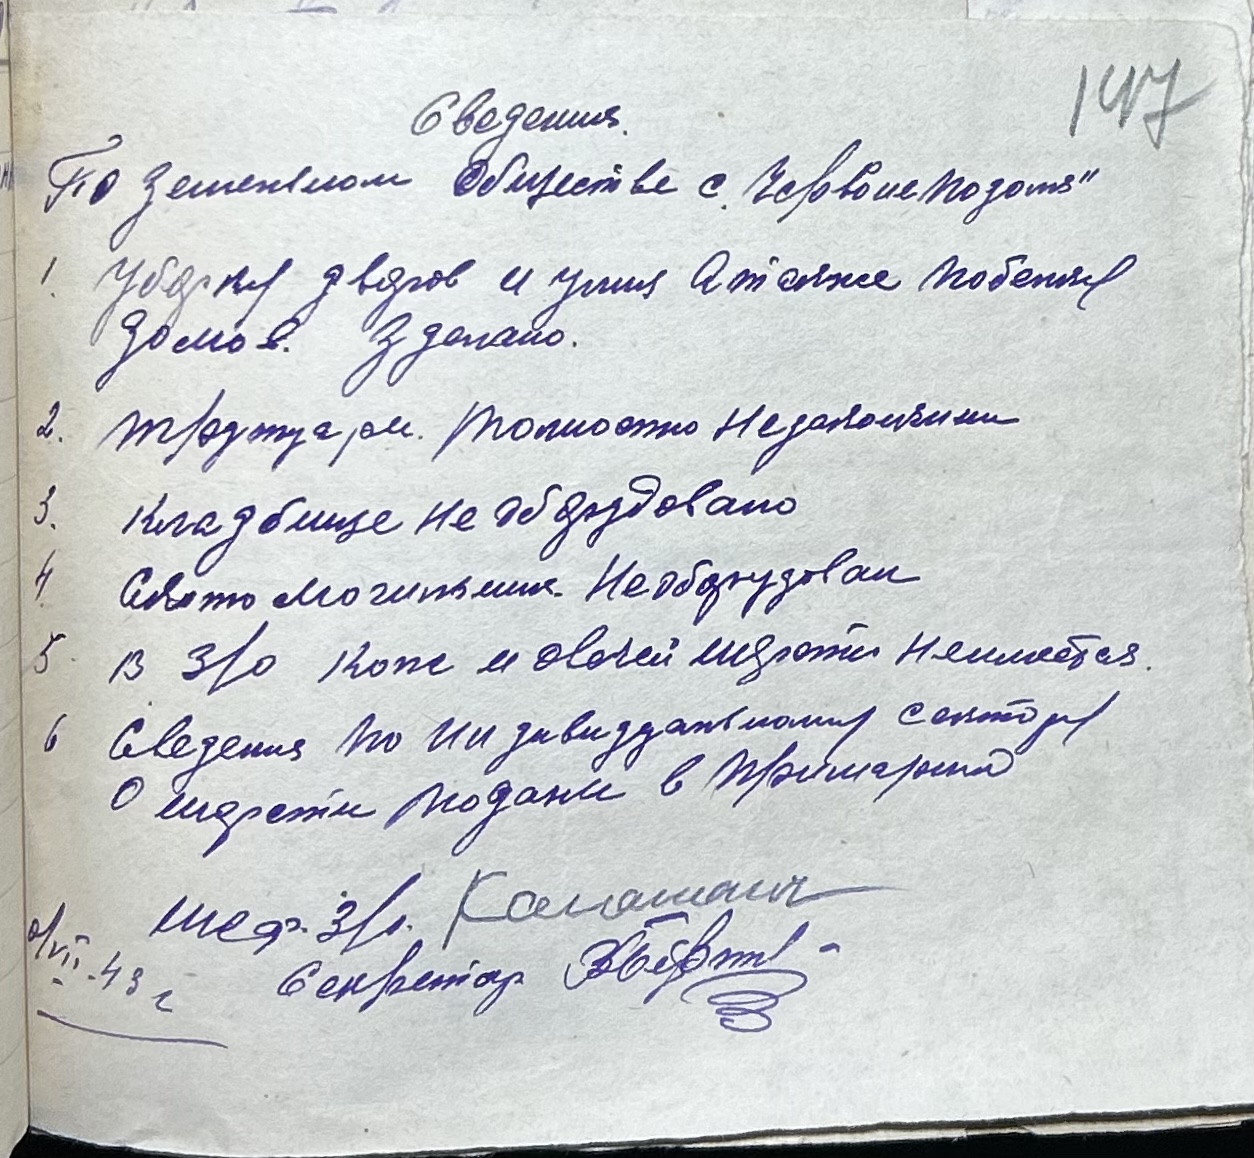 147
Сведения.
По Земельном Обществе с. "Червоне
1. Уборку дворов и улиц А также побелку
домов. Зделано.
2. тротуари. полностю Незакончини
3. Кладбище Не оборудовано
4. Скотомогильник Необорудован
5. в З/о Кож и овечей шерсти Неимеется.
6 Сведения по Индивидуальному сектору
О шерсти подани в Примарию
Шеф. З/о.
Секретар
/VII-43 г